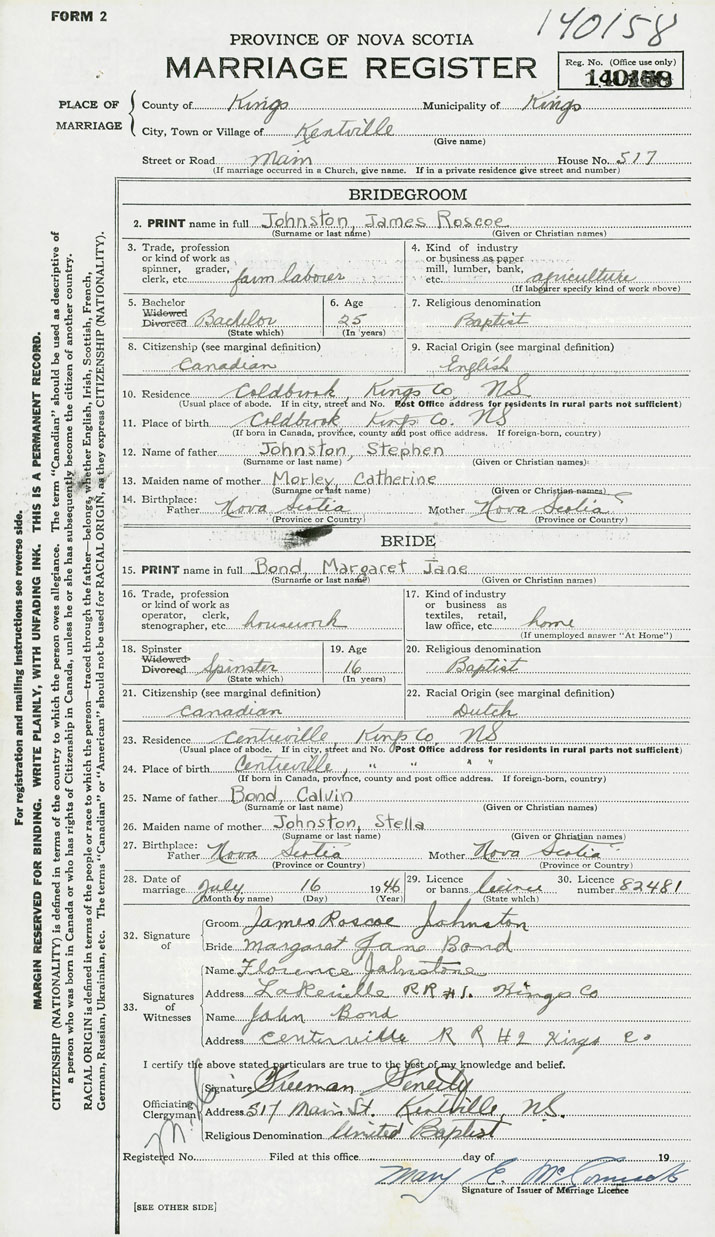 FORM 2
140158
PROVINCE OF NOVA SCOTIA
MARRIAGE REGISTER
Reg. No. (Office use only)
140158
PLACE OF MARRIAGE
County of Kings Municipality of Kings
City, Town or Village of Kentville
(Give name)
Street or Road Main House No. 517
(If marriage occurred in a Church, give name. If in a private residence give street and number)
BRIDEGROOM
2. PRINT name in full Johnston, James Roscoe
(Surname or last name) (Given or Christian names)
3. Trade, profession or kind of work as spinner, grader, clerk, etc. farm laborer
4. Kind of industry or business as paper mill, lumber, bank, etc. agriculture
(If labourer specify kind of work above)
5. Bachelor Widowed Divorced Bachlor
(State which)
6. Age 25
(In years)
7. Religious denomination
Baptist
8. Citizenship (see marginal definition)
Canadian
9. Racial Origin (see marginal definition)
English
10. Residence Coldbrook Kings Co, NS
(Usual place of abode. If in city, street and No. Post Office address for residents in rural parts not sufficient)
11. Place of birth Coldbrook Kings Co. NS
(If born in Canada, province, county and post office address. If foreign-born, country)
12. Name of father Johnston, Stephen
(Surname or last name) (Given or Christian names)
13. Maiden name of mother Morley, Catherine
(Surname or last name) (Given or Christian names)
14. Birthplace: Father Nova Scotia Mother Nova Scotia
(Province or Country) (Province or Country)
BRIDE
15. PRINT name in full Bond, Margaret Jane
(Surname or last name) (Given or Christian names)
16. Trade, profession or kind of work as operator, clerk, stenographer, etc. housework
17. Kind of industry or business as textiles, retail, law office, etc. home
(If unemployed answer "At Home")
18. Spinster Widowed Divorced Spinster
(State which)
19. Age 16
(In years)
20. Religious denomination
Baptist
21. Citizenship (see marginal definition)
Canadian
22. Racial Origin (see marginal definition)
Dutch
23. Residence Centreville, Kings Co, NS
(Usual place of abode. If in city, street and No. Post Office address for residents in rural parts not sufficient)
24. Place of birth Centreville, " " " "
(If born in Canada, province, county and post office address. If foreign-born, country)
25. Name of father Bond, Calvin
(Surname or last name) (Given or Christian names)
26. Maiden name of mother Johnston, Stella
(Surname or last name) (Given or Christian names)
27. Birthplace: Father Nova Scotia Mother Nova Scotia
(Province or Country) (Province or Country)
28. Date of marriage July 16 1946
(Month by name) (Day) (Year)
29. Licence or banns licence
(State which)
30. Licence number 82481
32. Signature of
Groom James Roscoe Johnston
Bride Margaret Jane Bond
33. Signatures of Witnesses
Name Florence Johnstone
Address Lakeville RR #1. Kings Co
Name John Bond
Address Centerville R R #2 Kings Co
I certify the above stated particulars are true to the best of my knowledge and belief.
Officiating Clergyman
Signature Freeman
Address 517 Main St. Kentville, N.S.
Religious Denomination United Baptist
Registered No. Filed at this office day of 19
Mary E. McCormick
Signature of Issuer of Marriage Licence
[SEE OTHER SIDE]
For registration and mailing instructions see reverse side.
MARGIN RESERVED FOR BINDING. WRITE PLAINLY, WITH UNFADING INK. THIS IS A PERMANENT RECORD.
CITIZENSHIP (NATIONALITY) is defined in terms of the country to which the person owes allegiance. The term "Canadian" should be used as descriptive of
a person who was born in Canada or who has rights of Citizenship in Canada, unless he or she has subsequently become the citizen of another country.
RACIAL ORIGIN is defined in terms of the people or race to which the person—traced through the father—belongs, whether English, Irish, Scottish, French,
German, Russian, Ukrainian, etc. The terms "Canadian" or "American" should not be used for RACIAL ORIGIN, as they express CITIZENSHIP (NATIONALITY).